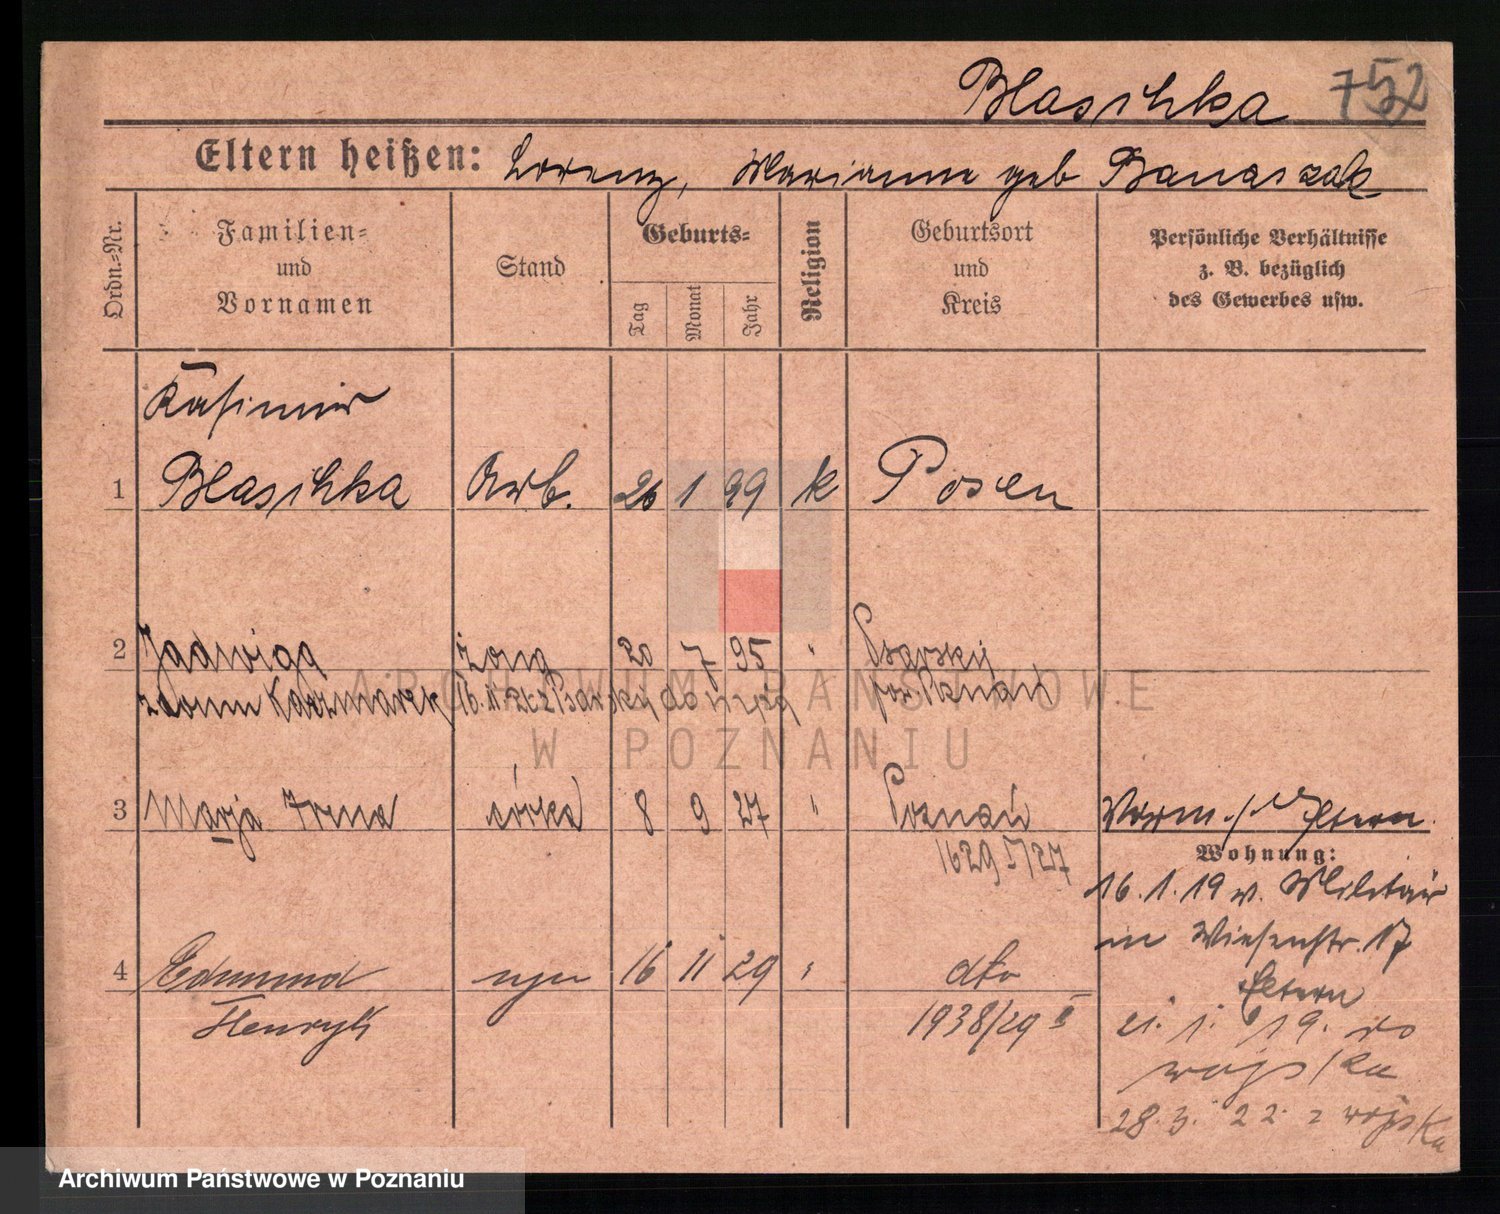 Blaschka 752
Eltern heißen: Lorenz, Marianne geb Banaszak
Ordn.-Nr.
Familien-
und
Vornamen
Stand
Geburts-
Tag
Monat
Jahr
Religion
Geburtsort
und
Kreis
Persönliche Verhältnisse
z. B. bezüglich
des Gewerbes usw.
Kasimir
1 Blaschka Arb. 26 1 99 k Posen
2 Jadwiga żona 20 7 95 " Psarskij
Kaczmarek 16.11. Psarskij do
pow. Poznań
3 Marja Irena córka 8 9 27 " Poznań
1629 I/27
Vorm. s/ Eltern.
Wohnung:
16.1.19 v. Militär
in Wiesenstr. 17
Eltern
4 Edmund syn 16 11 29 " dto
Henryk 1938/29 II
21. 1. 19. do
wojska
28. 3. 22 z wojska
ARCHIWUM PAŃSTWOWE
W POZNANIU
Archiwum Państwowe w Poznaniu